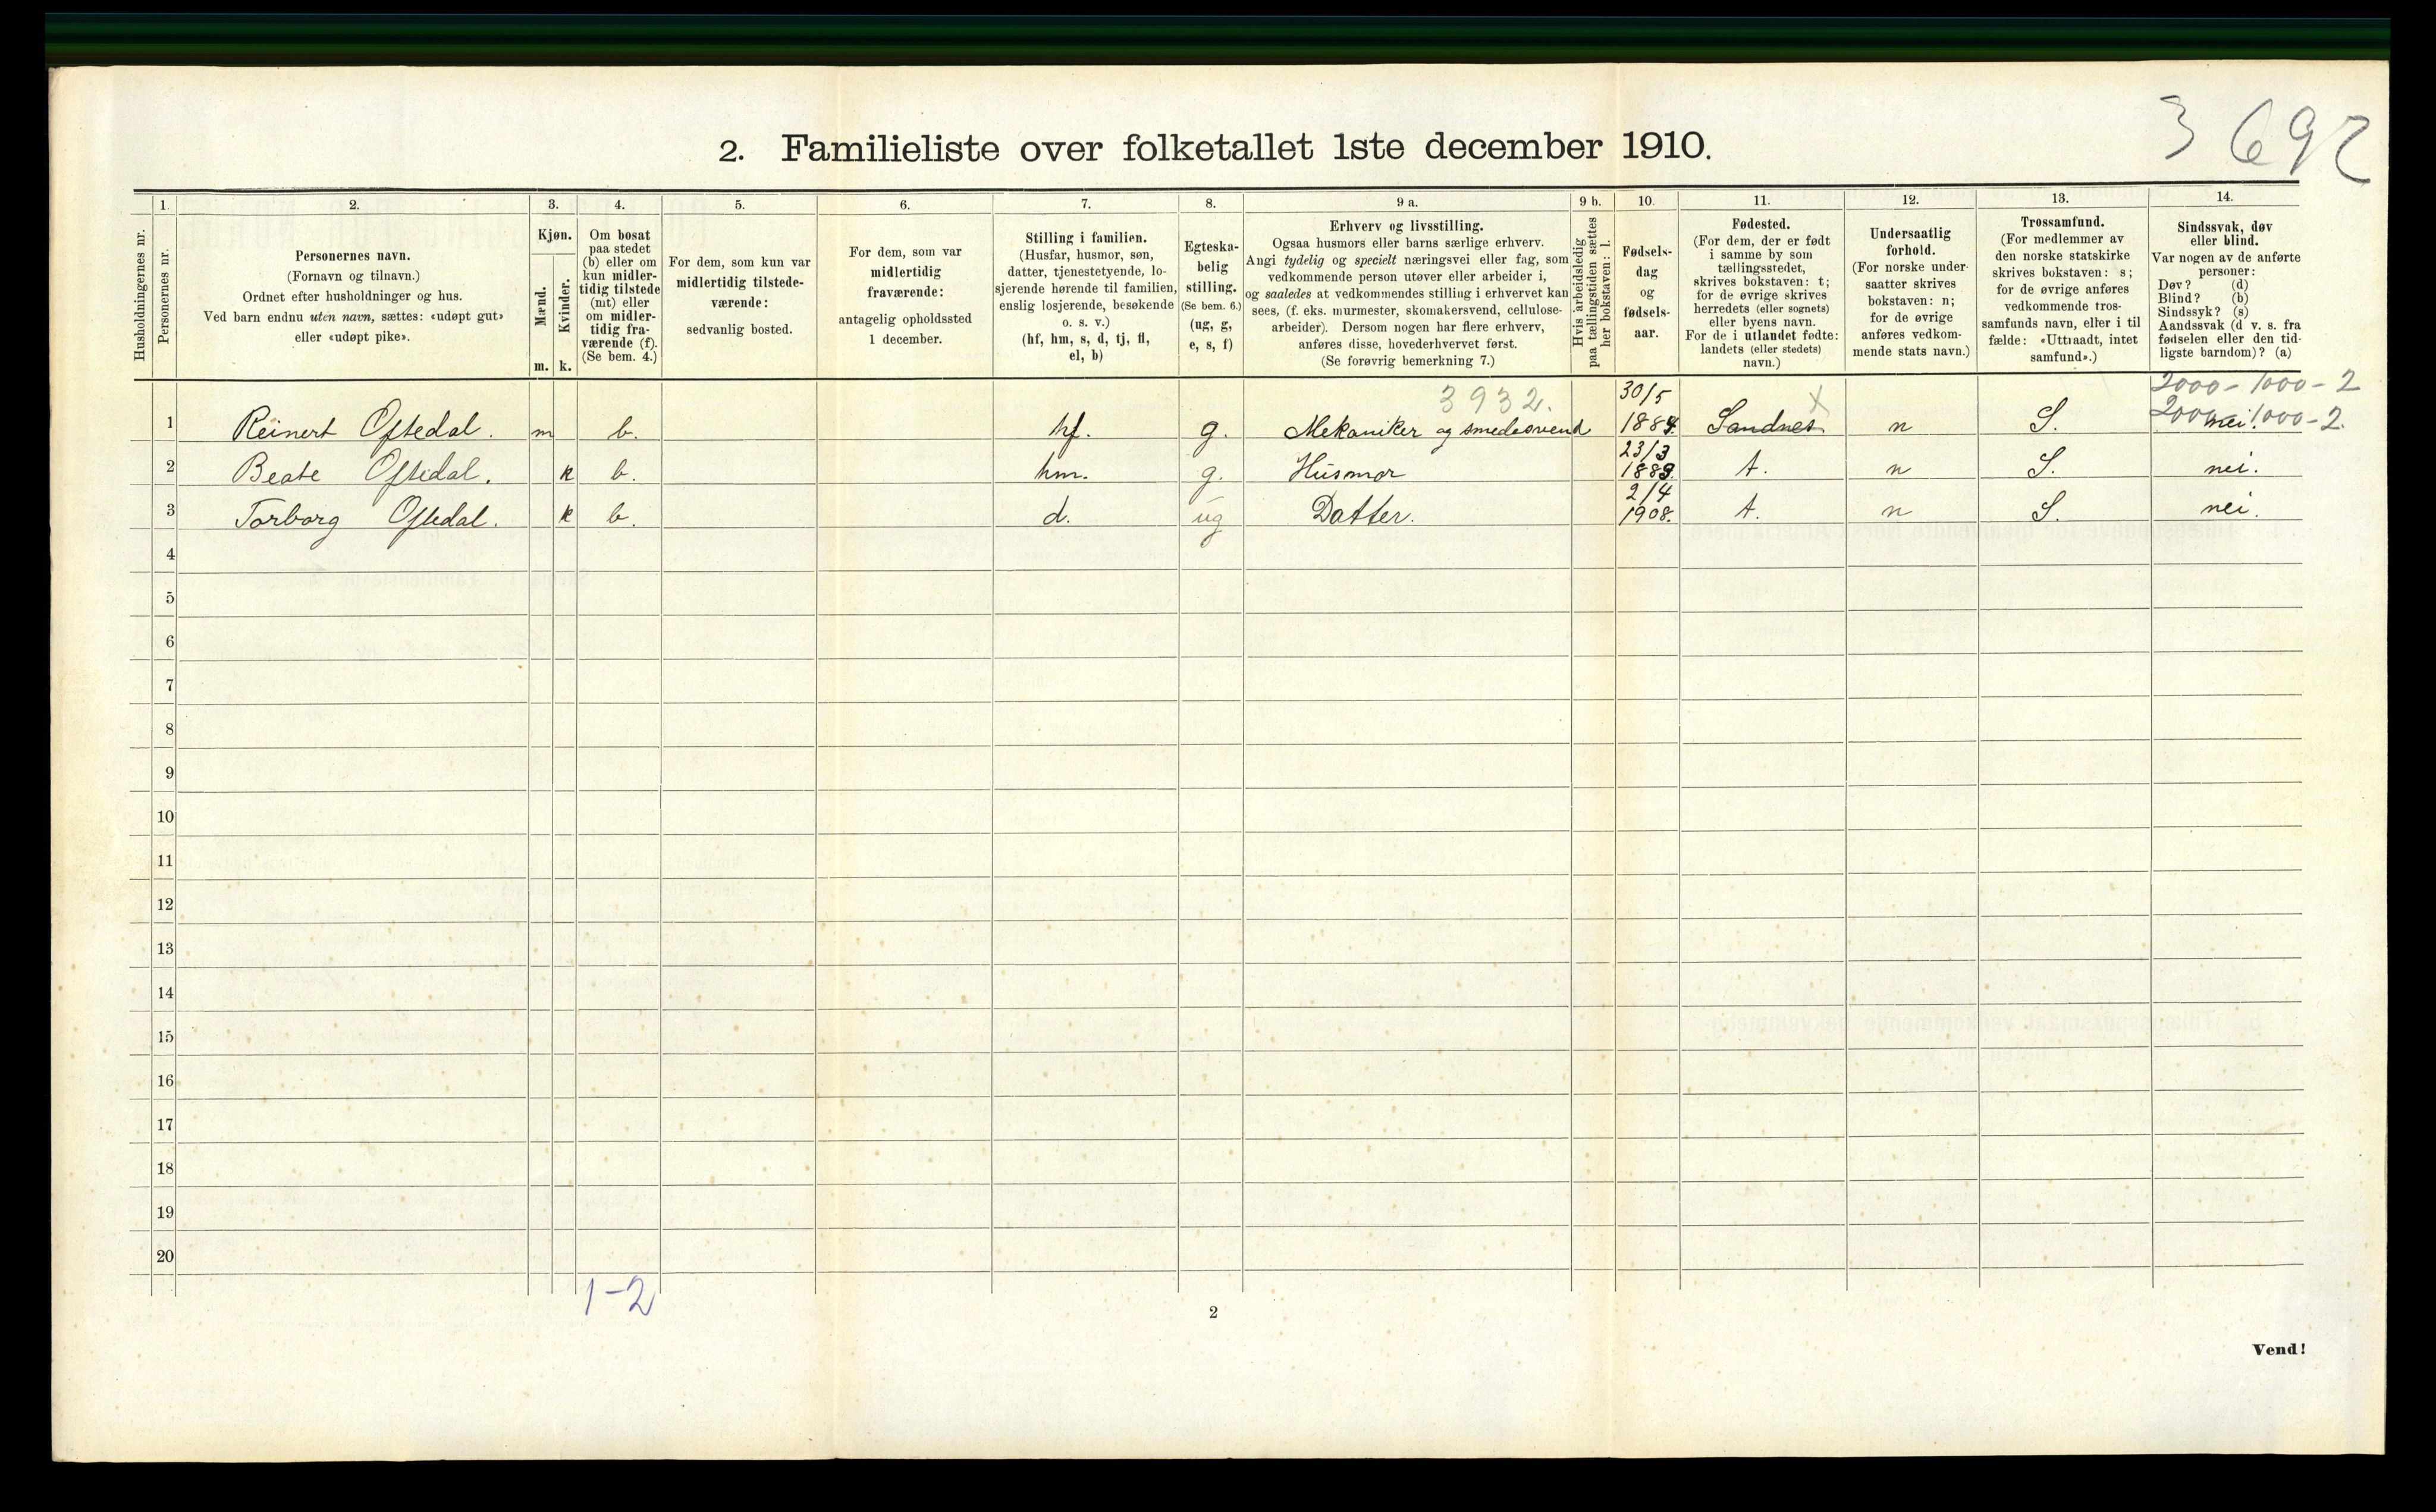 3 692
2. Familieliste over folketallet 1ste december 1910.
1. 2. 3. 4. 5. 6. 7. 8. 9 a. 9 b. 10. 11. 12. 13. 14.
Husholdningernes nr.
Personernes nr.
Personernes navn.
(Fornavn og tilnavn.)
Ordnet efter husholdninger og hus.
Ved barn endnu uten navn, sættes: «udøpt gut»
eller «udøpt pike».
Kjøn.
Mænd.
Kvinder.
m. k.
Om bosat
paa stedet
(b) eller om
kun midler-
tidig tilstede
(mt) eller
om midler-
tidig fra-
værende (f).
(Se bem. 4.)
For dem, som kun var
midlertidig tilstede-
værende:
sedvanlig bosted.
For dem, som var
midlertidig
fraværende:
antagelig opholdssted
1 december.
Stilling i familien.
(Husfar, husmor, søn,
datter, tjenestetyende, lo-
sjerende hørende til familien,
enslig losjerende, besøkende
o. s. v.)
(hf, hm, s, d, tj, fl,
el, b)
Egteska-
belig
stilling.
(Se bem. 6.)
(ug, g,
e, s, f)
Erhverv og livsstilling.
Ogsaa husmors eller barns særlige erhverv.
Angi tydelig og specielt næringsvei eller fag, som
vedkommende person utøver eller arbeider i,
og saaledes at vedkommendes stilling i erhvervet kan
sees, (f. eks. murmester, skomakersvend, cellulose-
arbeider). Dersom nogen har flere erhverv,
anføres disse, hovederhvervet først.
(Se forøvrig bemerkning 7.)
Hvis arbeidsledig
paa tællingstiden sættes
her bokstaven: l.
Fødsels-
dag
og
fødsels-
aar.
Fødested.
(For dem, der er født
i samme by som
tællingsstedet,
skrives bokstaven: t;
for de øvrige skrives
herredets (eller sognets)
eller byens navn.
For de i utlandet fødte:
landets (eller stedets)
navn.)
Undersaatlig
forhold.
(For norske under-
saatter skrives
bokstaven: n;
for de øvrige
anføres vedkom-
mende stats navn.)
Trossamfund.
(For medlemmer av
den norske statskirke
skrives bokstaven: s;
for de øvrige anføres
vedkommende tros-
samfunds navn, eller i til
fælde: «Uttraadt, intet
samfund».)
Sindssvak, døv
eller blind.
Var nogen av de anførte
personer:
Døv? (d)
Blind? (b)
Sindssyk? (s)
Aandssvak (d v. s. fra
fødselen eller den tid-
ligste barndom)? (a)
3932. 30/5 X 2000-1000-2
1 Reinert Oftedal. m b. hf. g. Mekaniker og smedesvend 1884. Sandnes n S. nei. 2000-1000-2.
23/3
2 Beate Oftedal. k b. hm. g. Husmor 1883. t. n S. nei.
2/4
3 Torborg Oftedal. k b. d. ug Datter. 1908. t. n S. nei.
4
5
6
7
8
9
10
11
12
13
14
15
16
17
18
19
20
1-2
2
Vend!